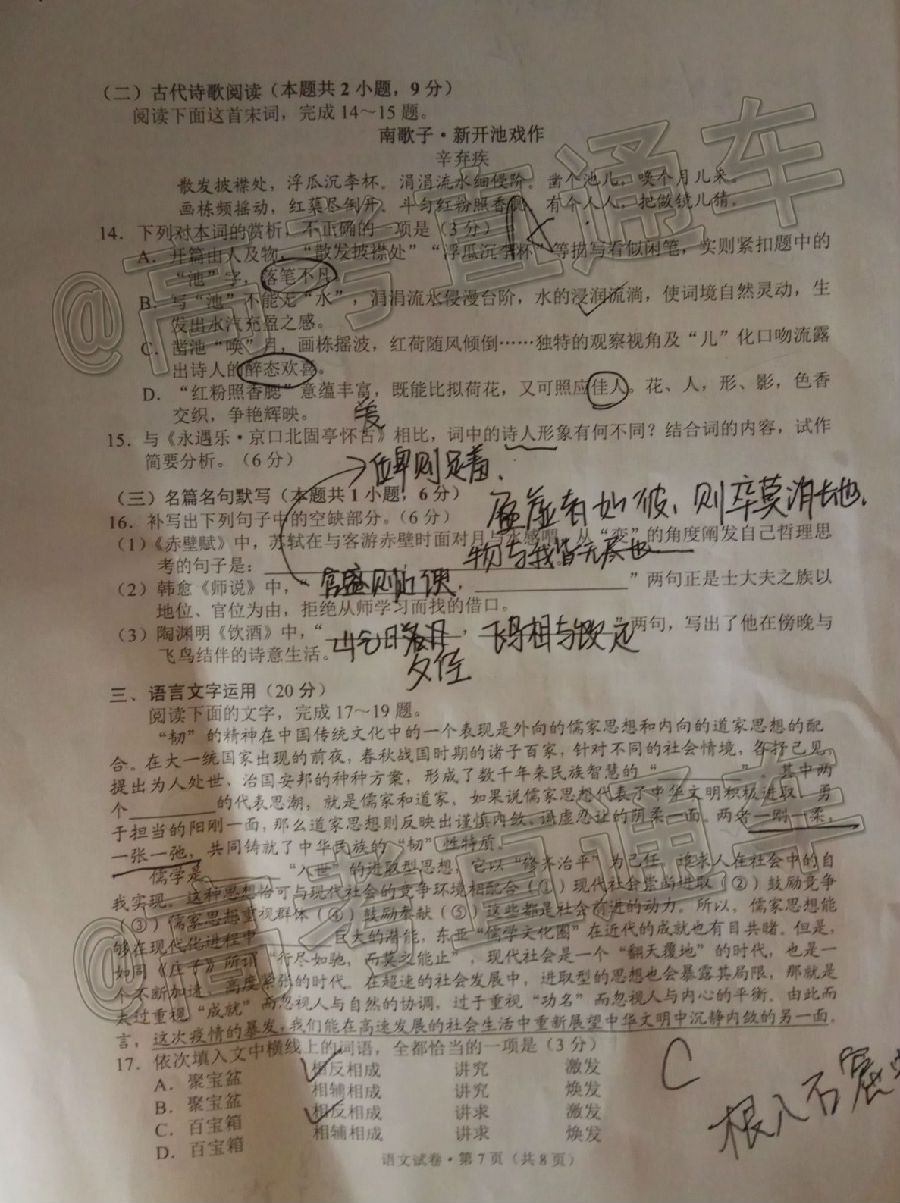 （二）古代诗歌阅读（本题共2小题，9分）
阅读下面这首宋词，完成14～15题。
南歌子·新开池戏作
辛弃疾
散发披襟处，浮瓜沉李杯。涓涓流水细侵阶。凿个池儿，唤个月儿来。
画栋频摇动，红蕖尽倒开。斗匀红粉照香腮。有个人人，把做镜儿猜。
14．下列对本词的赏析，不正确的一项是（3分）
A
A．开篇由人及物，“散发披襟处”“浮瓜沉李杯”等描写看似闲笔，实则紧扣题中的
“池”字，落笔不凡。
B．写“池”不能无“水”，涓涓流水侵漫台阶，水的浸润流淌，使词境自然灵动，生
发出水汽充盈之感。
C．凿池“唤”月，画栋摇波，红荷随风倾倒……独特的观察视角及“儿”化口吻流露
出诗人的醉态欢喜。
D．“红粉照香腮”意蕴丰富，既能比拟荷花，又可照应佳人。花、人，形、影，色香
交织，争艳辉映。
15．与《永遇乐·京口北固亭怀古》相比，词中的诗人形象有何不同？结合词的内容，试作
简要分析。（6分）
位卑则足羞
（三）名篇名句默写（本题共1小题，6分）
盈虚者如彼，则卒莫消长也
16．补写出下列句子中的空缺部分。（6分）
（1）《赤壁赋》中，苏轼在与客游赤壁时面对月与水感喟，从“变”的角度阐发自己哲理思
考的句子是：
物与我皆无尽也
（2）韩愈《师说》中，“ 官盛则近谀， ”两句正是士大夫之族以
地位、官位为由，拒绝从师学习而找的借口。
（3）陶渊明《饮酒》中，“ 山气日 ， 飞鸟相与 两句，写出了他在傍晚与
飞鸟结伴的诗意生活。
夕佳
三、语言文字运用（20分）
阅读下面的文字，完成17～19题。
“韧”的精神在中国传统文化中的一个表现是外向的儒家思想和内向的道家思想的配
合。在大一统国家出现的前夜，春秋战国时期的诸子百家，针对不同的社会情境，各抒己见，
提出为人处世、治国安邦的种种方案，形成了数千年来民族智慧的“ ”。其中两
个 的代表思潮，就是儒家和道家。如果说儒家思想代表了中华文明积极进取、勇
于担当的阳刚一面，那么道家思想则反映出谨慎内敛、谦虚忍让的阴柔一面。两者一刚一柔，
一张一弛，共同铸就了中华民族的“韧”性特质。
儒学是 “入世”的进取型思想，它以“修齐治平”为己任，追求人在社会中的自
我实现。这种思想恰可与现代社会的竞争环境相配合（①）现代社会崇尚进取（②）鼓励竞争
（③）儒家思想重视群体（④）鼓励奉献（⑤）这些都是社会前进的动力。所以，儒家思想能
够在现代化进程中 巨大的潜能，东亚“儒学文化圈”在近代的成就也有目共睹。但是，
如同《庄子》所谓“行尽如驰，而莫之能止”，现代社会是一个“翻天覆地”的时代，也是一
个不断加进、高度紧张的时代。在超速的社会发展中，进取型的思想也会暴露其局限，那就是
太过重视“成就”而忽视人与自然的协调，过于重视“功名”而忽视人与内心的平衡。由此而
言，这次疫情的暴发，我们能在高速发展的社会生活中重新展望中华文明中沉静内敛的另一面。
17．依次填入文中横线上的词语，全都恰当的一项是（3分）
A．聚宝盆 相反相成 讲究 激发
B．聚宝盆 相辅相成 讲究 焕发
C．百宝箱 相反相成 讲求 激发
D．百宝箱 相辅相成 讲求 焕发
C
根入石窟
语文试卷·第7页（共8页）
@高考直通车
@高考直通车